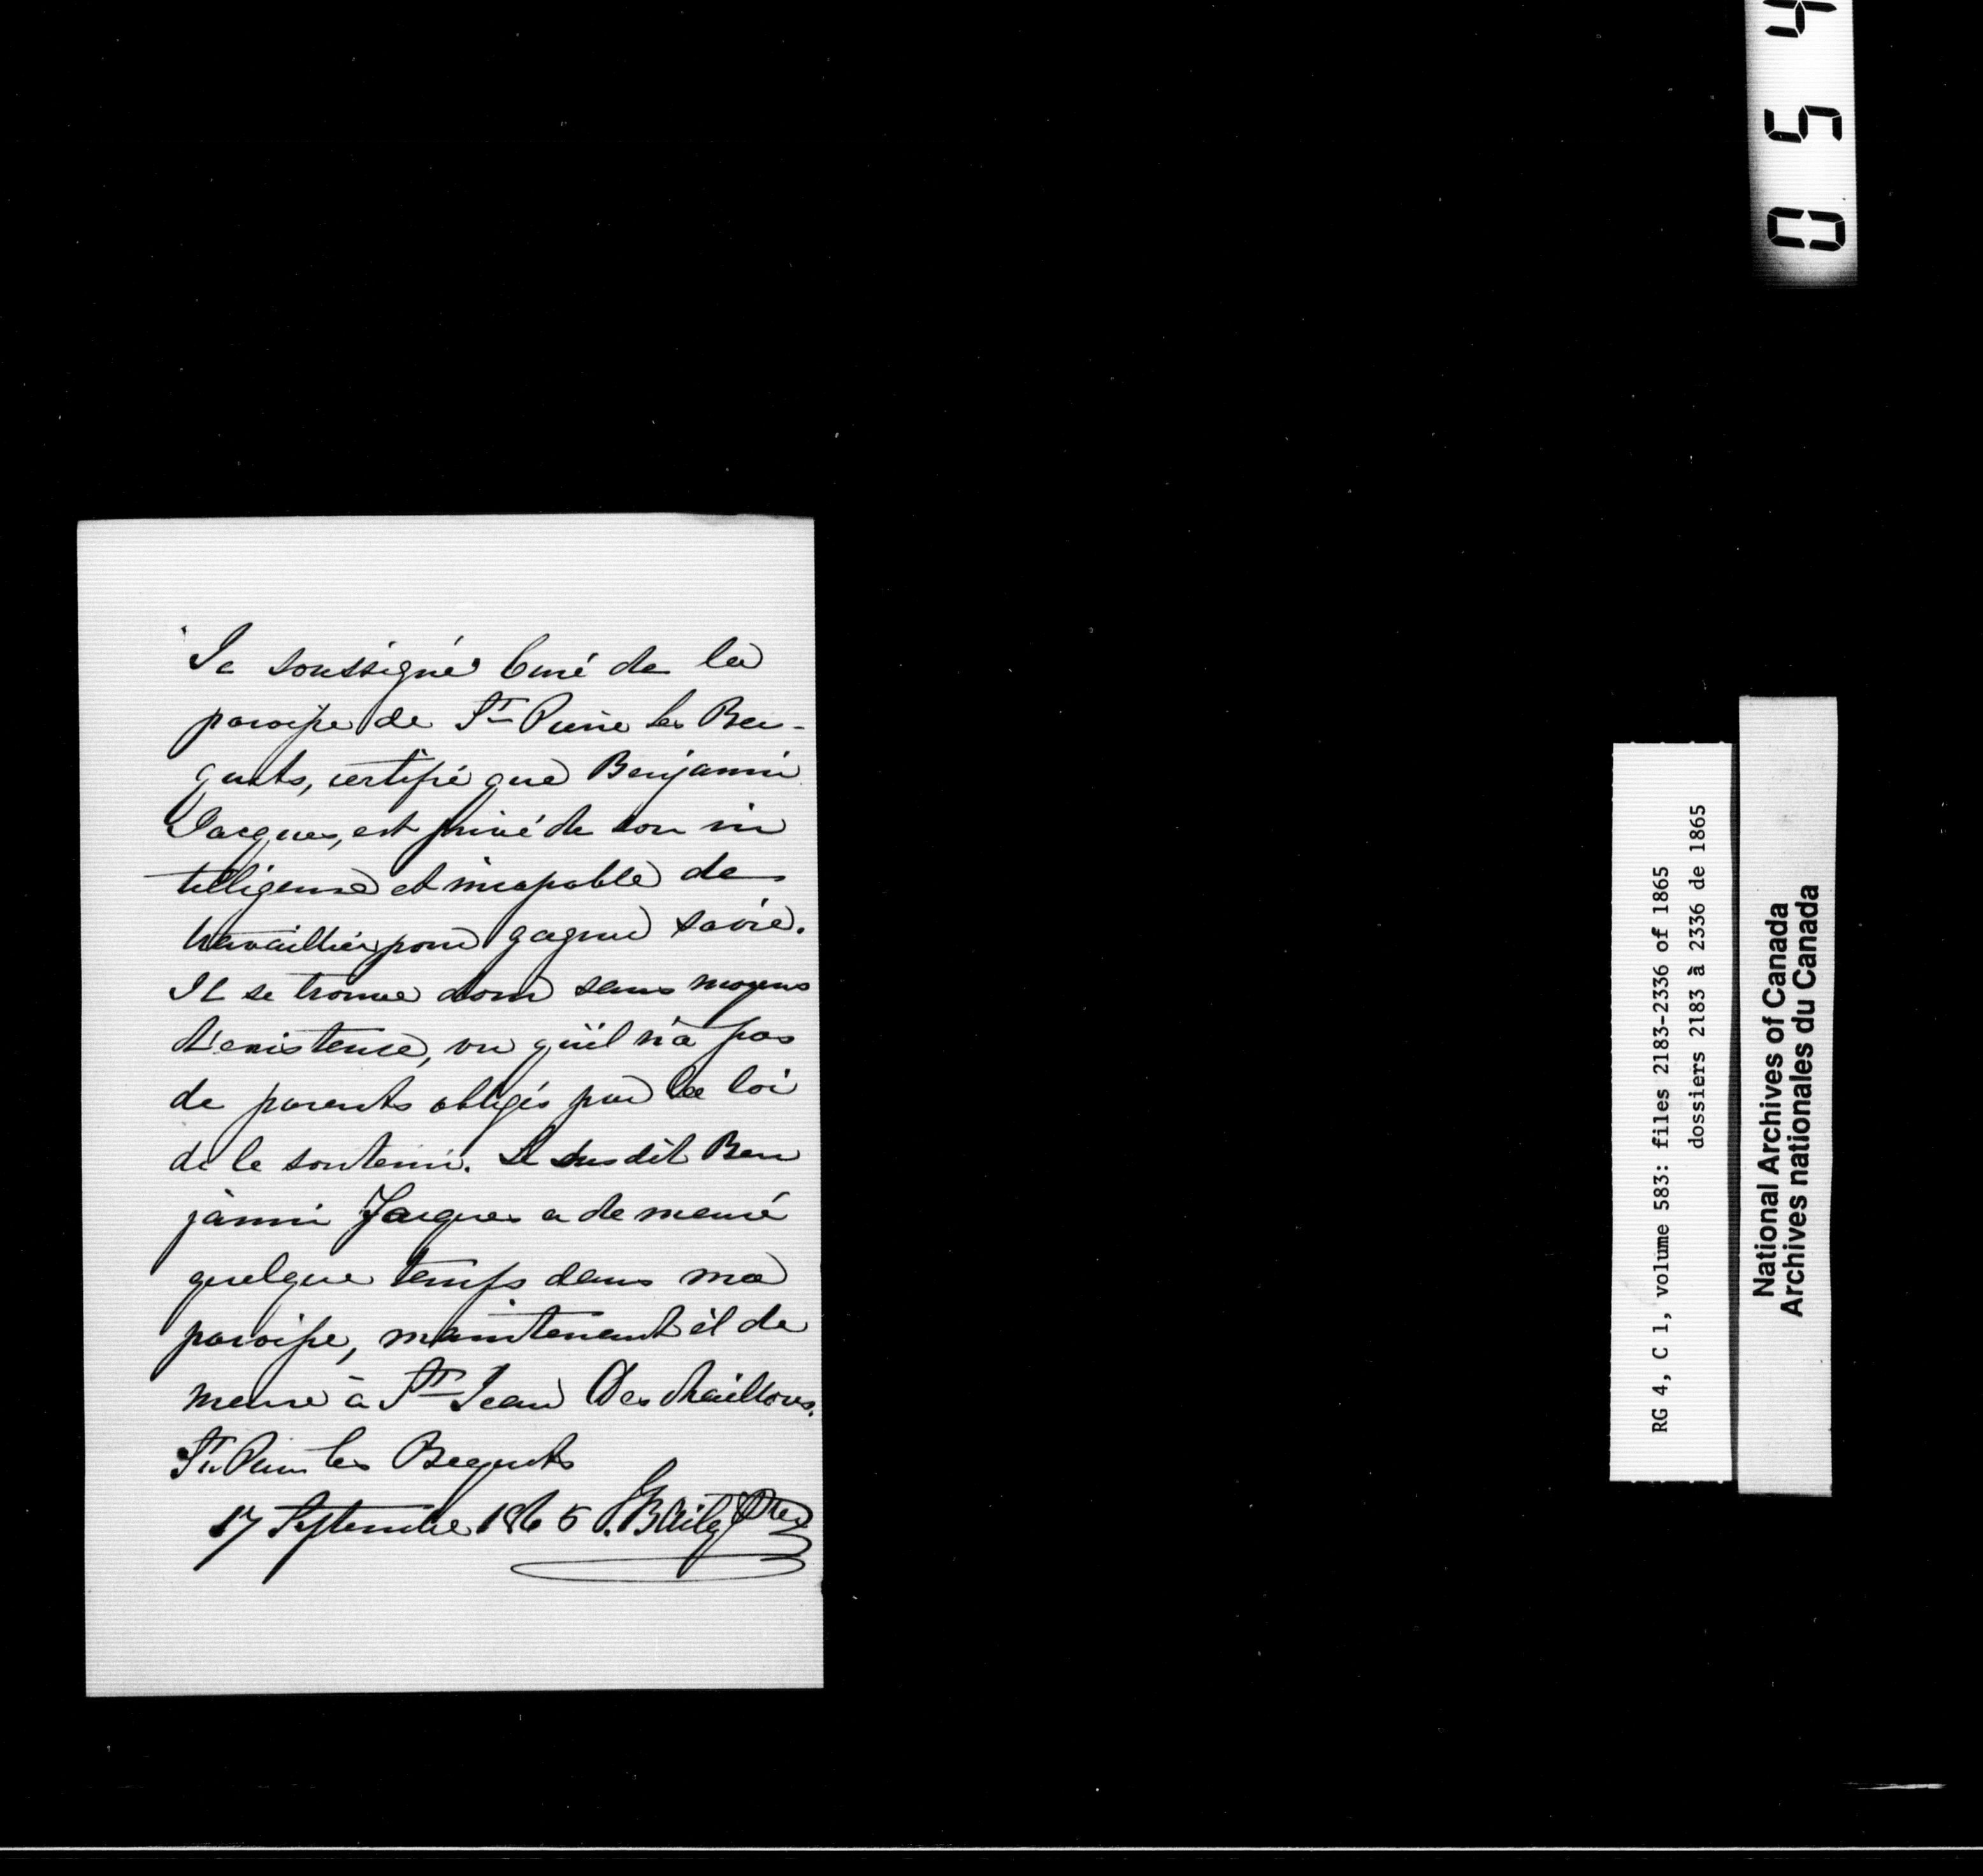 Je soussigné Curé de la
paroisse de St Pierre les Bec-
quets, certifie que Benjamin
Jacques, est privé de son in
telligence et incapable de
travailler pour gagner sa vie.
Il se trouve donc sans moyens
d'existence, vu qu'il n'a pas
de parents obligés par la loi
de le soutenir. Le susdit Ben
jamin Jacques a demeuré
quelque temps dans ma
paroisse, maintenant il de
meure à St Jean Deschaillons.
St Pierre les Becquets
17 Septembre 1865 Bailey Ptre
0 5 4
RG 4, C 1, volume 583: files 2183-2336 of 1865
dossiers 2183 à 2336 de 1865
National Archives of Canada
Archives nationales du Canada